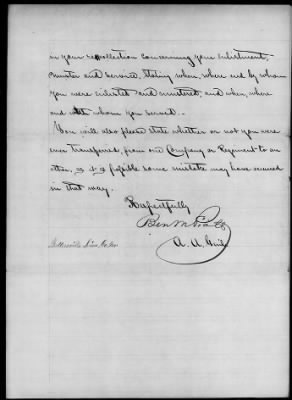 in your recollection concerning your enlistment,
muster and service, stating when, where and by whom
you were enlisted and mustered, and when, where
and with whom you served.
You will also please state whether or not you were
ever transferred, from one Company or Regiment to an
other, as it is possible some mistake may have occurred
in that way.
Respectfully
Ben M
A. A.